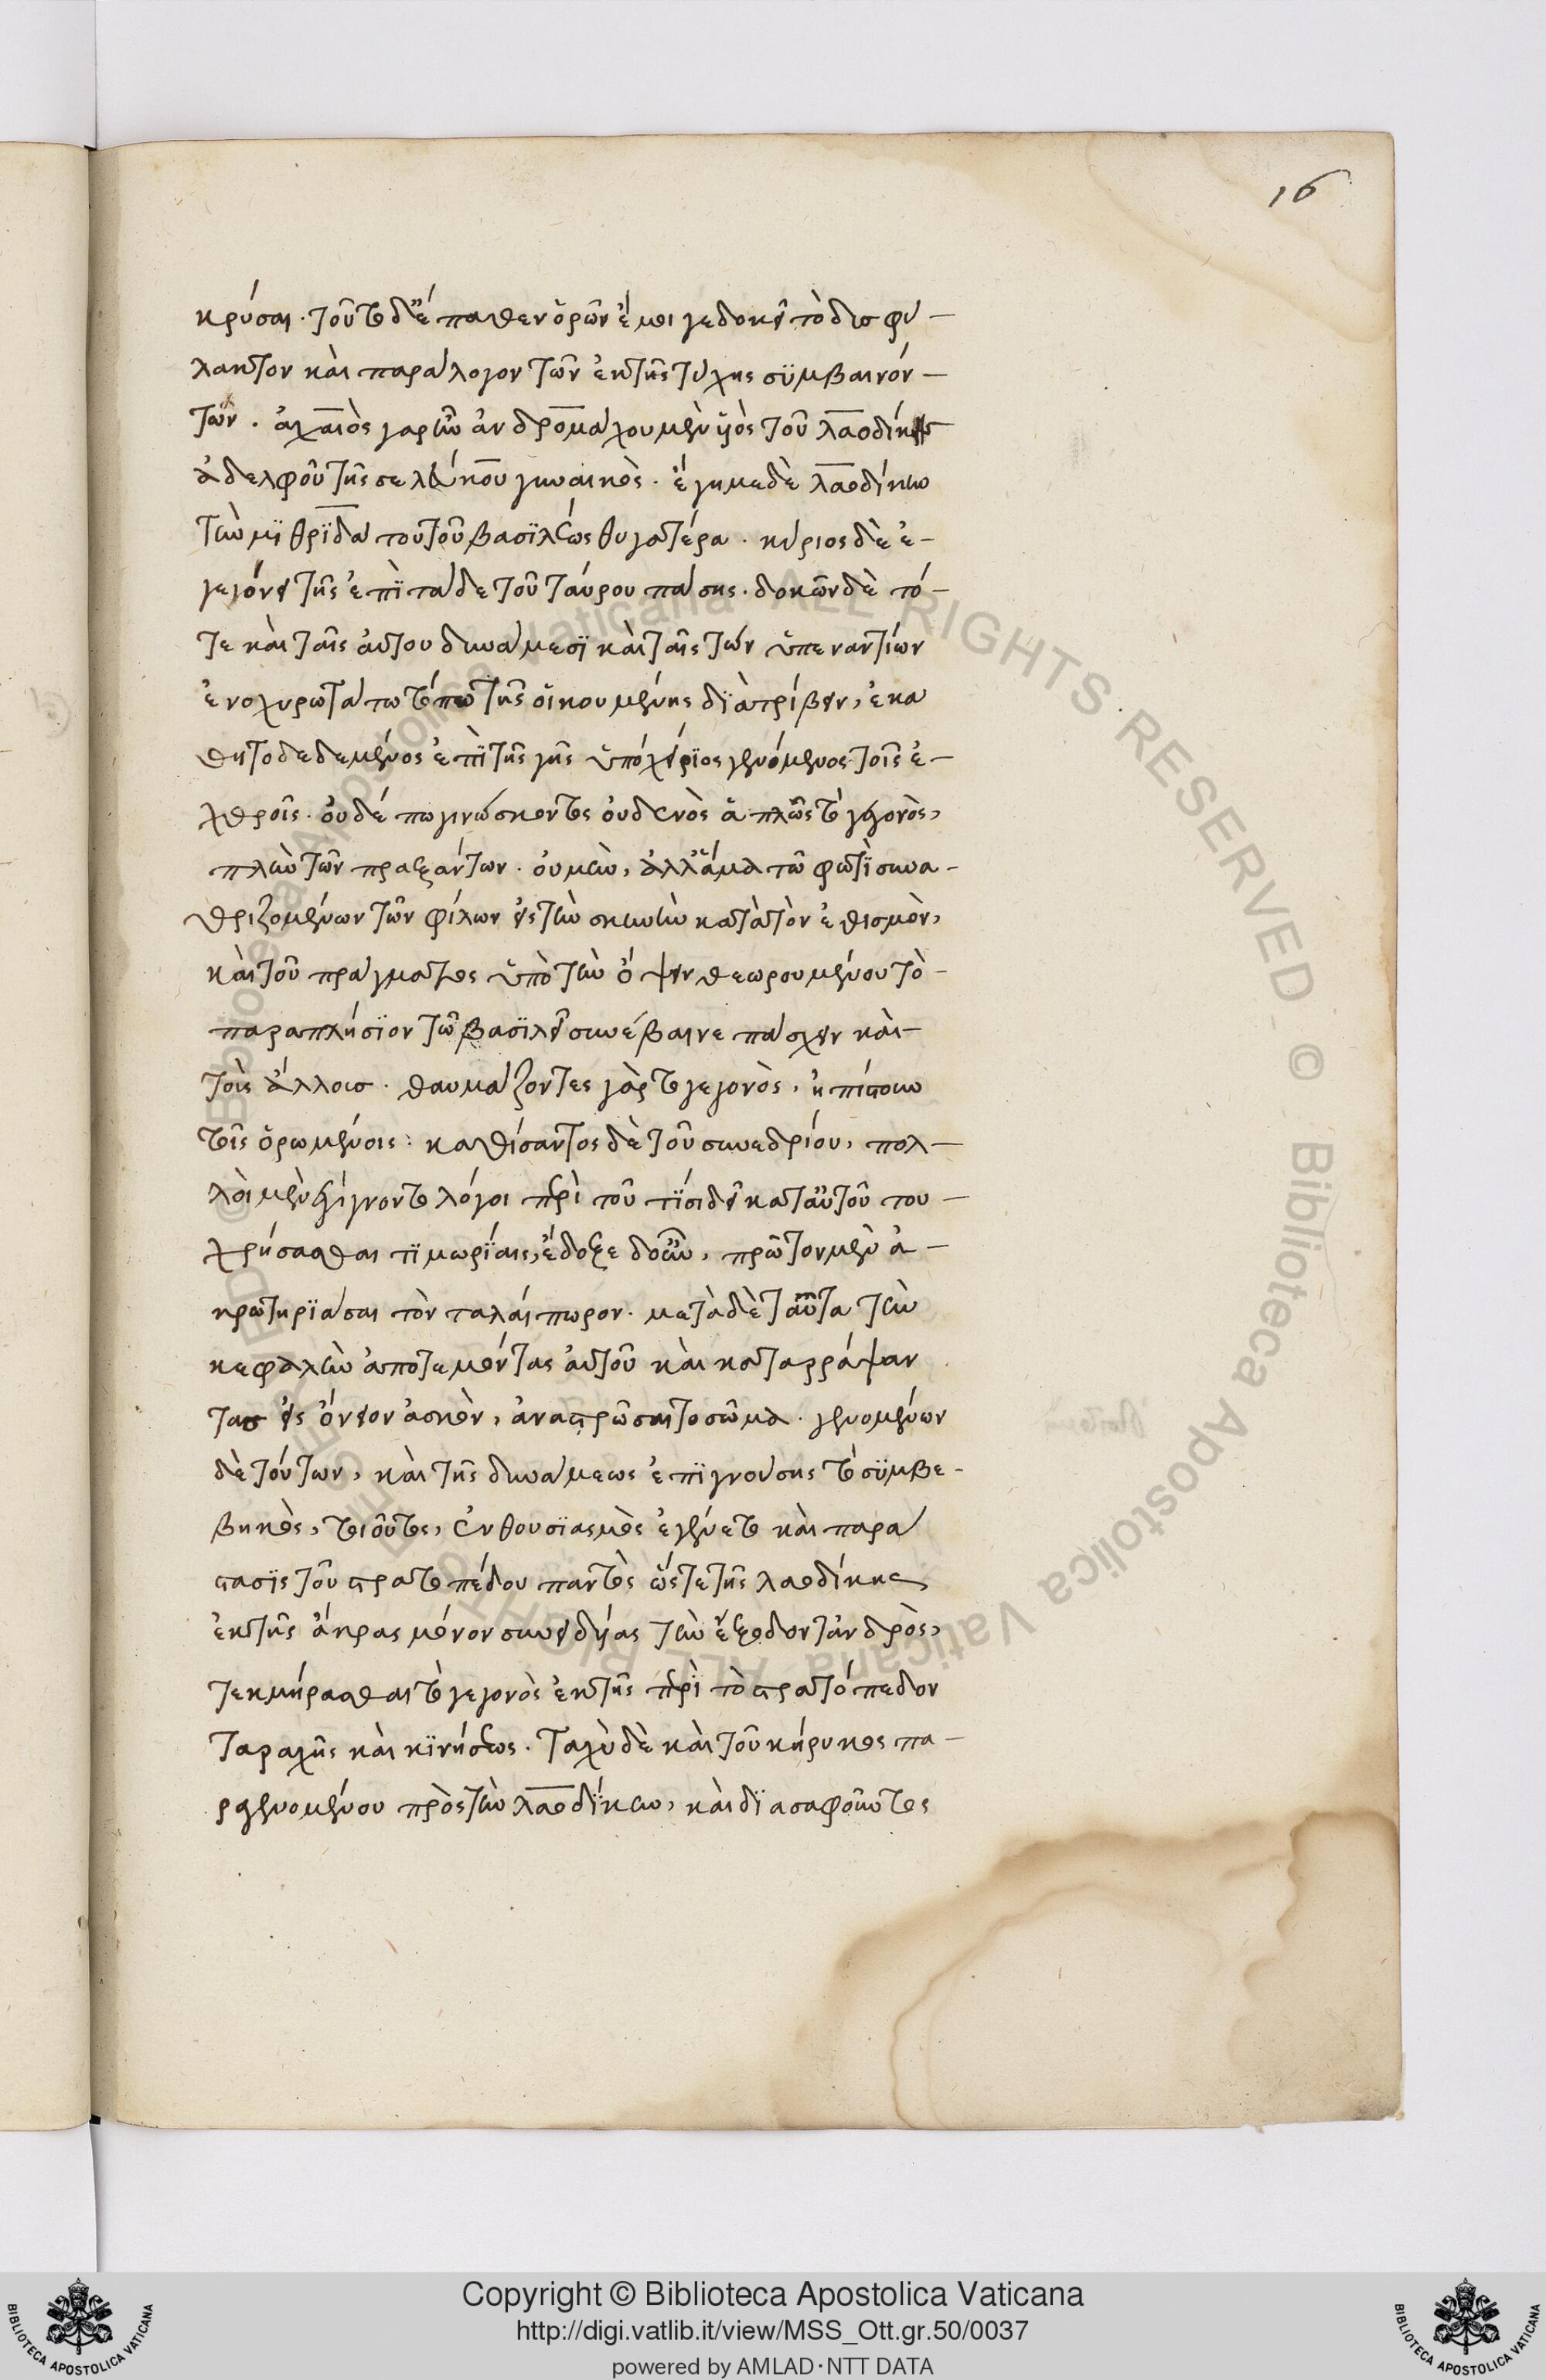 16
κρύσαι. τοῦτο δὲ ἔπαθεν ὁρῶν ἔμοι γε δοκεῖ τὸ δισφύ-
λακτον καὶ παράλογον τῶν ἐκ τῆς τύχης συμβαινόν-
των. ἀχαιὸς γαρ ἦν ἀνδρομάχου μὲν ϋἱὸς τοῦ λαοδίκης
ἀδελφοῦ τῆς σελεύκου γυναικὸς. ἔγημε δὲ λαοδίκην
τὴν μϊθρϊδάτου τοῦ βασϊλέως θυγατέρα. κύριος δὲ ἐ-
γεγόνει τῆς ἐπὶ τάδε τοῦ ταύρου πάσης. δοκῶν δὲ τό-
τε καὶ ταῖς αὐτου δυνάμεσϊ καὶ ταῖς τῶν ὑπεναντίων
ἐν ὀχυρωτάτω τόπω τῆς οἰκουμένης δϊατρίβειν, ἐκά
θητο δεδεμένος ἐπὶ τῆς γῆς ὑποχείριος γενόμενος τοῖς ἐ-
χθροῖς. οὐδέπω γινώσκοντος οὐδενὸς ἁπλῶς τὸ γεγονὸς,
πλὴν τῶν πραξάντων. οὐ μὴν, ἀλλ' ἅμα τῶ φωτὶ συνα-
θριζομένων τῶν φίλων εἰς τὴν σκηνὴν κατὰ τὸν ἐθισμὸν,
καὶ τοῦ πράγματος ὑπὸ τὴν ὄψιν θεωρουμένου τὸ-
παραπλήσϊον τῶ βασϊλεῖ συνέβαινε πάσχειν καὶ-
τοῖς ἄλλοισ. θαυμάζοντες γὰρ τὸ γεγονὸς, ἠπίστουν
τοῖς ὁρωμένοις. καθίσαντος δὲ τοῦ συνεδρίου, πολ-
λοὶ μὲν ἐγίγνοντο λόγοι περὶ τοῦ τίσι δεῖ κατ' αὐτοῦ του-
χρήσασθαι τϊμωρίαις, ἔδοξε δ' οὖν, πρῶτον μὲν ἀ-
κρωτηρϊάσαι τὸν ταλαίπωρον. μετὰ δὲ ταῦτα τὴν
κεφαλὴν ἀποτεμόντας αὐτοῦ καὶ καταρράψαν
τασ εἰς ὄνειον ἀσκὸν, ἀνασταυρῶσαι το σῶμα. γενομένων
δὲ τούτων, καὶ τῆς δυνάμεως ἐπϊγνούσης τὸ συμβε-
βηκὸς, τοιοῦτος, ἐνθουσϊασμὸς ἐγένετο καὶ παρά
στασϊς τοῦ στρατοπέδου παντὸς ὥστε τῆς λαοδίκης
ἐκ τῆς ἄκρας μόνον συνειδυίας τὴν ἔξοδον τἀνδρὸς,
τεκμήρασθαι τὸ γεγονὸς ἐκ τῆς περὶ τὸ στρατόπεδον
ταραχῆς καὶ κϊνήσεως. ταχὺ δὲ καὶ τοῦ κήρυκος πα-
ραγενομένου πρὸς τὴν λαοδίκην, καὶ δϊασαφοῦντος
Copyright © Biblioteca Apostolica Vaticana
http://digi.vatlib.it/view/MSS_Ott.gr.50/0037
powered by AMLAD·NTT DATA